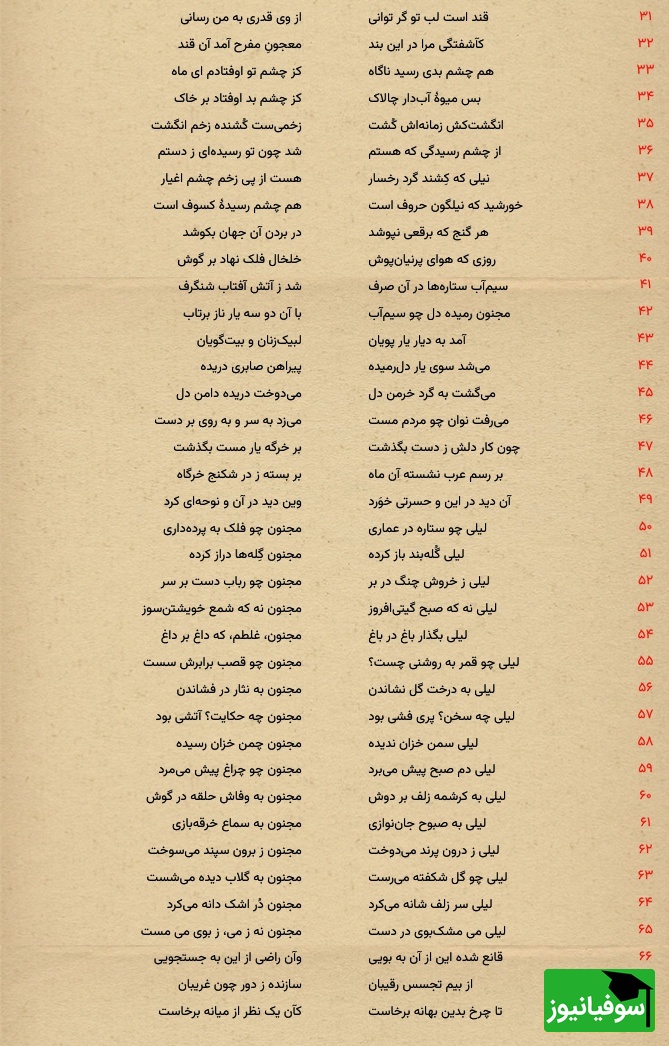 ۳۱ قند است لب تو گر توانی از وی قدری به من رسانی
۳۲ کآشفتگی مرا در این بند معجونِ مفرح آمد آن قند
۳۳ هم چشم بدی رسید ناگاه کز چشم تو اوفتادم ای ماه
۳۴ بس میوهٔ آب‌دار چالاک کز چشم بد اوفتاد بر خاک
۳۵ انگشت‌کش زمانه‌اش کُشت زخمی‌ست کُشنده زخم انگشت
۳۶ از چشم رسیدگی که هستم شد چون تو رسیده‌ای ز دستم
۳۷ نیلی که کِشند گرد رخسار هست از پی زخم چشم اغیار
۳۸ خورشید که نیلگون حروف است هم چشم رسیدهٔ کسوف است
۳۹ هر گنج که برقعی نپوشد در بردن آن جهان بکوشد
۴۰ روزی که هوای پرنیان‌پوش خلخال فلک نهاد بر گوش
۴۱ سیم‌آب ستاره‌ها در آن صرف شد ز آتش آفتاب شنگرف
۴۲ مجنون رمیده دل چو سیم‌آب با آن دو سه یار ناز برتاب
۴۳ آمد به دیار یار پویان لبیک‌زنان و بیت‌گویان
۴۴ می‌شد سوی یار دل‌رمیده پیراهن صابری دریده
۴۵ می‌گشت به گرد خرمن دل می‌دوخت دریده دامن دل
۴۶ می‌رفت نوان چو مردم مست می‌زد به سر و به روی بر دست
۴۷ چون کار دلش ز دست بگذشت بر خرگه یار مست بگذشت
۴۸ بر رسم عرب نشسته آن ماه بر بسته ز در شکنج خرگاه
۴۹ آن دید در این و حسرتی خوَرد وین دید در آن و نوحه‌ای کرد
۵۰ لیلی چو ستاره در عماری مجنون چو فلک به پرده‌داری
۵۱ لیلی کُله‌بند باز کرده مجنون گِله‌ها دراز کرده
۵۲ لیلی ز خروش چنگ در بر مجنون چو رباب دست بر سر
۵۳ لیلی نه که صبح گیتی‌افروز مجنون نه که شمع خویشتن‌سوز
۵۴ لیلی بگذار باغ در باغ مجنون، غلطم، که داغ بر داغ
۵۵ لیلی چو قمر به روشنی چست؟ مجنون چو قصب برابرش سست
۵۶ لیلی به درخت گل نشاندن مجنون به نثار در فشاندن
۵۷ لیلی چه سخن؟ پری فشی بود مجنون چه حکایت؟ آتشی بود
۵۸ لیلی سمن خزان ندیده مجنون چمن خزان رسیده
۵۹ لیلی دم صبح پیش می‌برد مجنون چو چراغ پیش می‌مرد
۶۰ لیلی به کرشمه زلف بر دوش مجنون به وفاش حلقه در گوش
۶۱ لیلی به صبوح جان‌نوازی مجنون به سماع خرقه‌بازی
۶۲ لیلی ز درون پرند می‌دوخت مجنون ز برون سپند می‌سوخت
۶۳ لیلی چو گل شکفته می‌رست مجنون به گلاب دیده می‌شست
۶۴ لیلی سر زلف شانه می‌کرد مجنون دُر اشک دانه می‌کرد
۶۵ لیلی می مشک‌بوی در دست مجنون نه ز می، ز بوی می مست
۶۶ قانع شده این از آن به بویی وآن راضی از این به جستجویی
از بیم تجسس رقیبان سازنده ز دور چون غریبان
تا چرخ بدین بهانه برخاست کآن یک نظر از میانه برخاست
سوفیانیوز